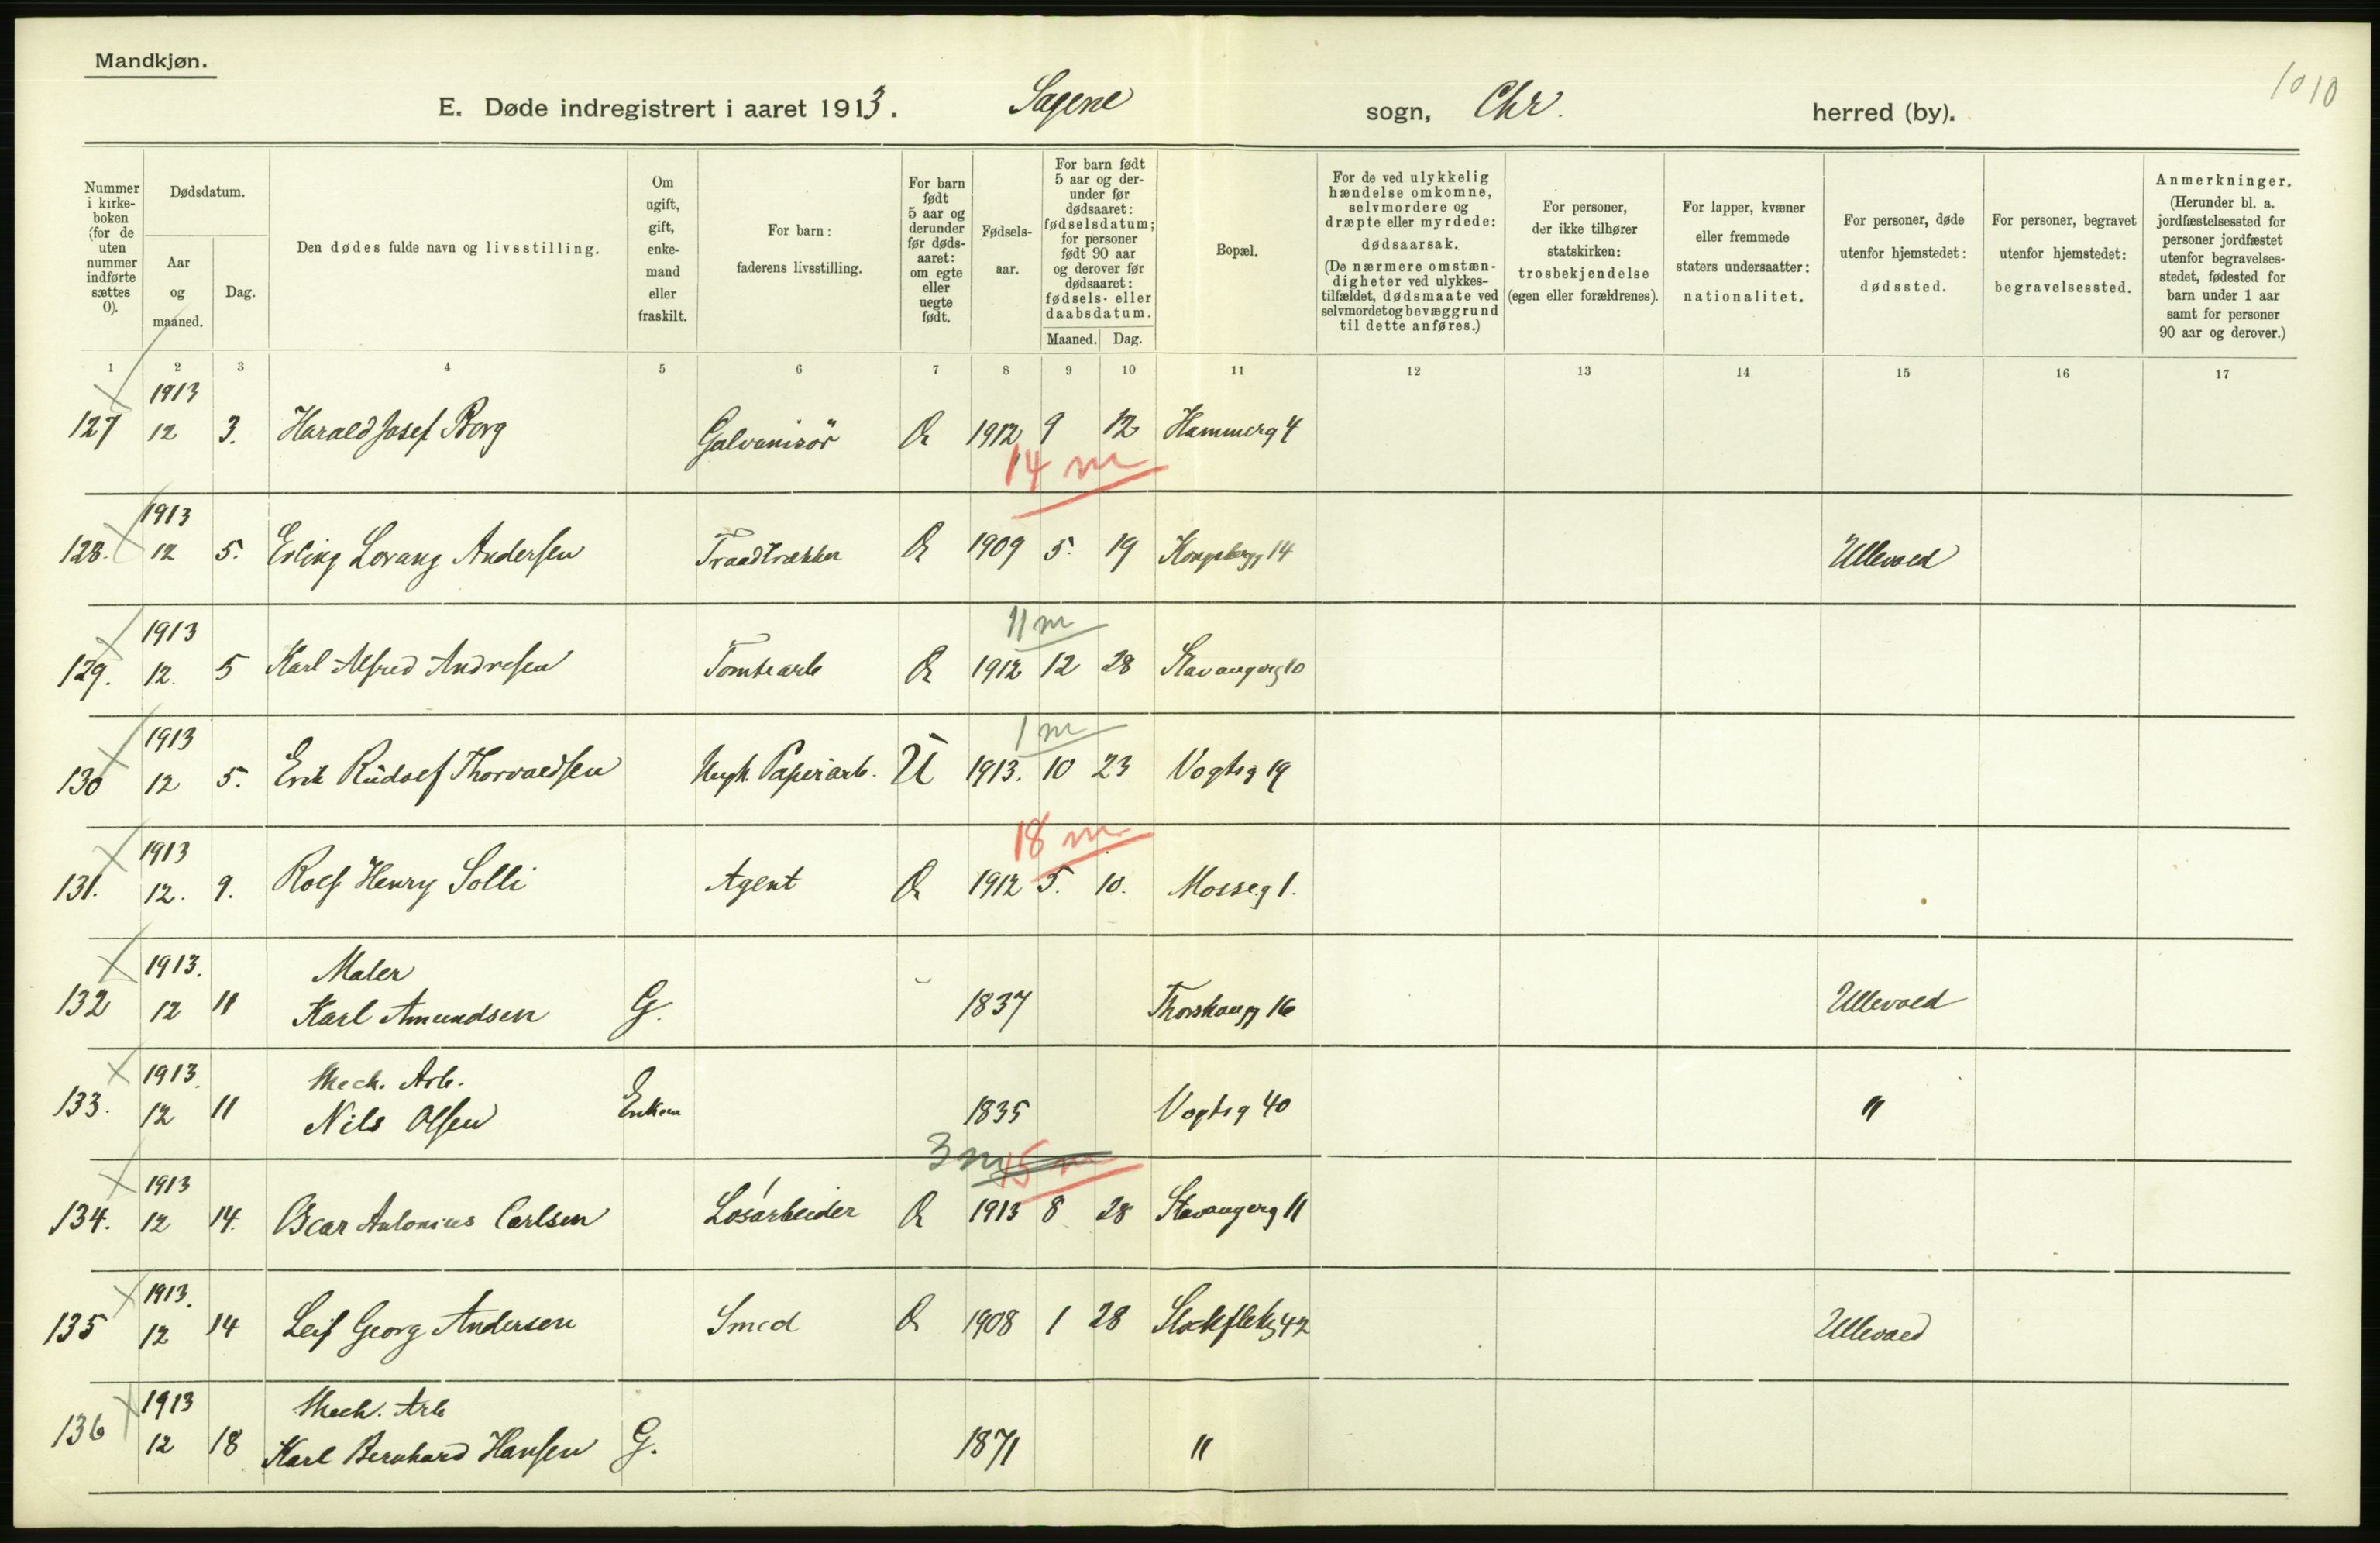 Mandkjøn.
1010
E. Døde indregistrert i aaret 1913. Sagene sogn, Chr. herred (by).
Nummer i kirke-boken (for de uten nummer indførte sættes 0).
Dødsdatum.
Aar og maaned.
Dag.
Den dødes fulde navn og livsstilling.
Om ugift, gift, enke-mand eller fraskilt.
For barn: faderens livsstilling.
For barn født 5 aar og derunder før døds-aaret: om egte eller uegte født.
Fødsels-aar.
For barn født 5 aar og der-under før dødsaaret: fødselsdatum; for personer født 90 aar og derover før dødsaaret: fødsels- eller daabsdatum.
Maaned. Dag.
Bopæl.
For de ved ulykkelig hændelse omkomne, selvmordere og dræpte eller myrdede: dødsaarsak. (De nærmere omstæn-digheter ved ulykkes-tilfældet, dødsmaate ved selvmordet og bevæggrund til dette anføres.)
For personer, der ikke tilhører statskirken: trosbekjendelse (egen eller forældrenes).
For lapper, kvæner eller fremmede staters undersaatter: nationalitet.
For personer, døde utenfor hjemstedet: dødssted.
For personer, begravet utenfor hjemstedet: begravelsessted.
Anmerkninger. (Herunder bl. a. jordfæstelsessted for personer jordfæstet utenfor begravelses-stedet, fødested for barn under 1 aar samt for personer 90 aar og derover.)
1 2 3 4 5 6 7 8 9 10 11 12 13 14 15 16 17
1913
127 12 3. Harald Josef Borg Galvanisör E 1912 9 12 Hammerg 4
14 m
1913
128. 12 5. Erling Lorang Andersen Traadtrækker E 1909 5. 19 Kongsbergg 14 Ullevaal
11 m
1913
129. 12. 5 Karl Alfred Andresen Tomtearb E 1912 12 28 Stavangerg 10
1 m
1913
130 12 5. Erik Rudolf Thorvaldsen Ungk. Papirarb. U 1913. 10 23 Vogtsg 19
18 m
1913
131. 12. 9. Rolf Henry Solli Agent E 1912 5. 10. Mosseg 1.
1913. Maler
132 12 11 Karl Amundsen G. 1837 Thorshaugg 16 Ullevaal
1913. Mech. Arb.
133. 12 11 Nils Olsen Enkem 1835 Vogtsg 40 "
3 m 15 m
1913
134. 12 14. Oscar Antonius Carlsen Løsarbeider E 1913 8 28 Stavangerg 11
1913.
135 12 14 Leif Georg Andersen Smed E 1908 1 28 Stockfletsg 42 Ullevaal
1913 Mech. Arb
136 12 18 Karl Bernhard Hansen G. 1871 "